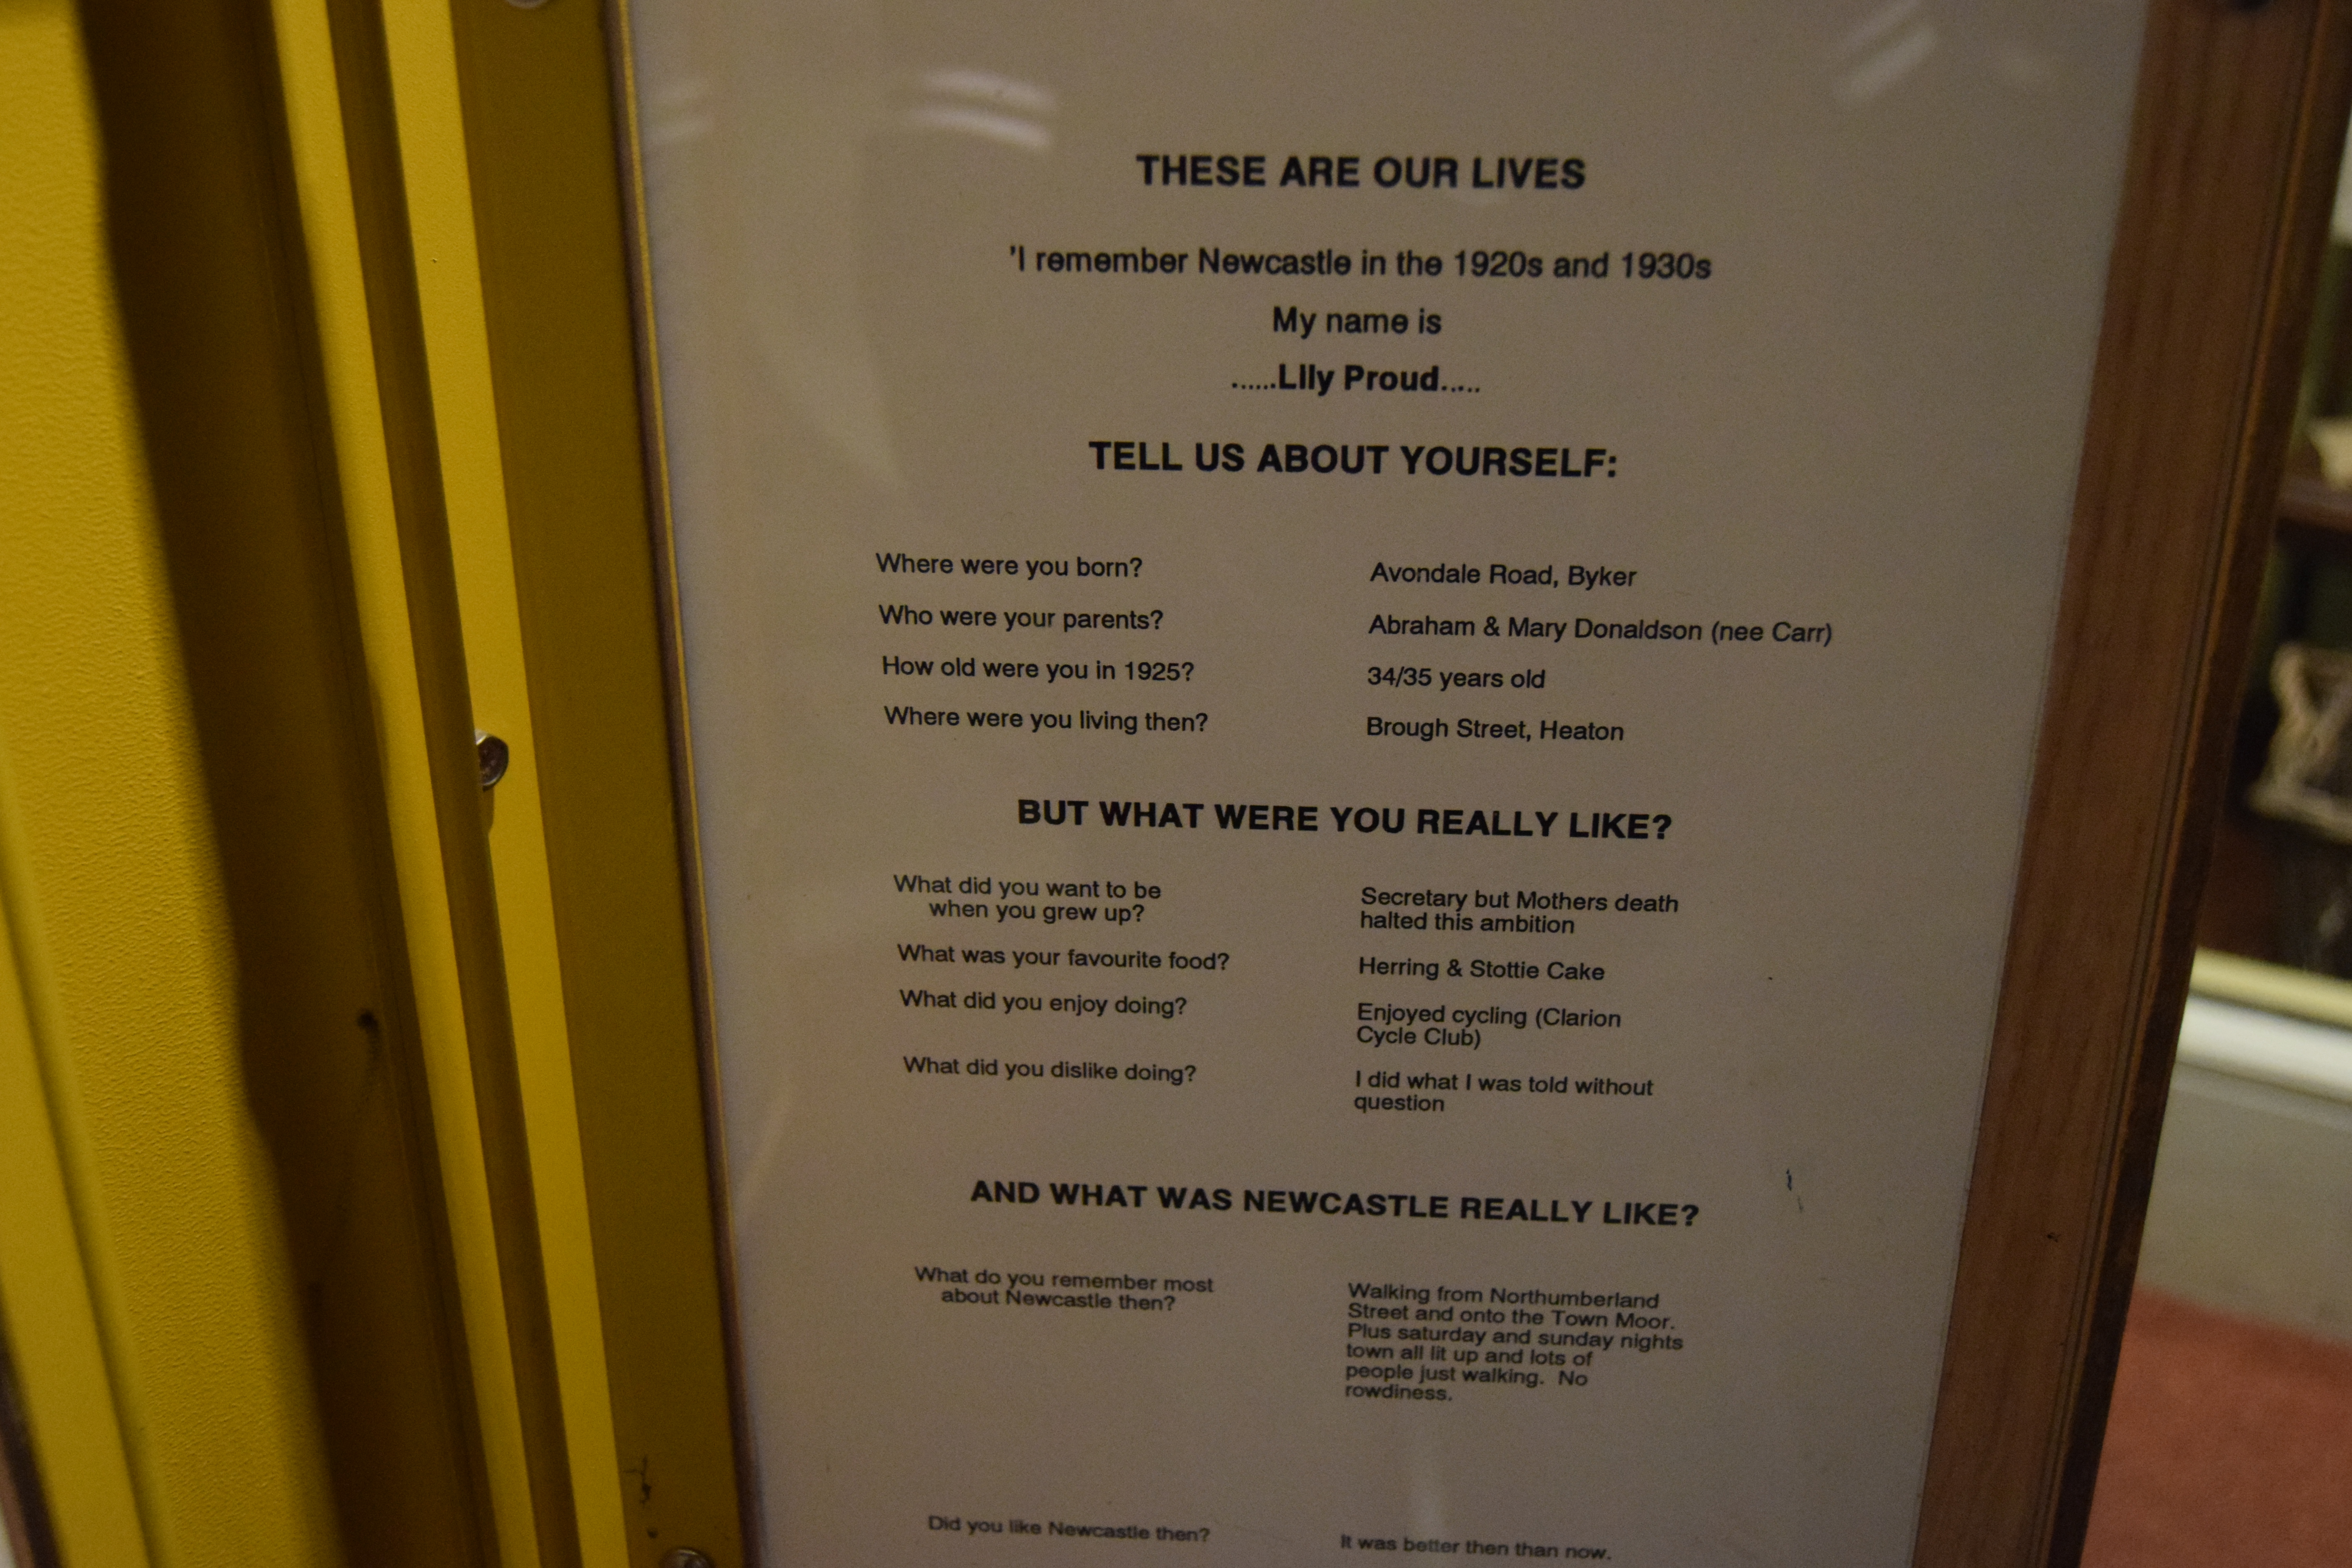 THESE ARE OUR LIVES
'I remember Newcastle in the 1920s and 1930s
My name is
......Lily Proud.....
TELL US ABOUT YOURSELF:
Where were you born? Avondale Road, Byker
Who were your parents? Abraham & Mary Donaldson (nee Carr)
How old were you in 1925? 34/35 years old
Where were you living then? Brough Street, Heaton
BUT WHAT WERE YOU REALLY LIKE?
What did you want to be Secretary but Mothers death
when you grew up? halted this ambition
What was your favourite food? Herring & Stottie Cake
What did you enjoy doing? Enjoyed cycling (Clarion
Cycle Club)
What did you dislike doing? I did what I was told without
question
AND WHAT WAS NEWCASTLE REALLY LIKE?
What do you remember most Walking from Northumberland
about Newcastle then? Street and onto the Town Moor.
Plus saturday and sunday nights
town all lit up and lots of
people just walking. No
rowdiness.
Did you like Newcastle then? It was better then than now.